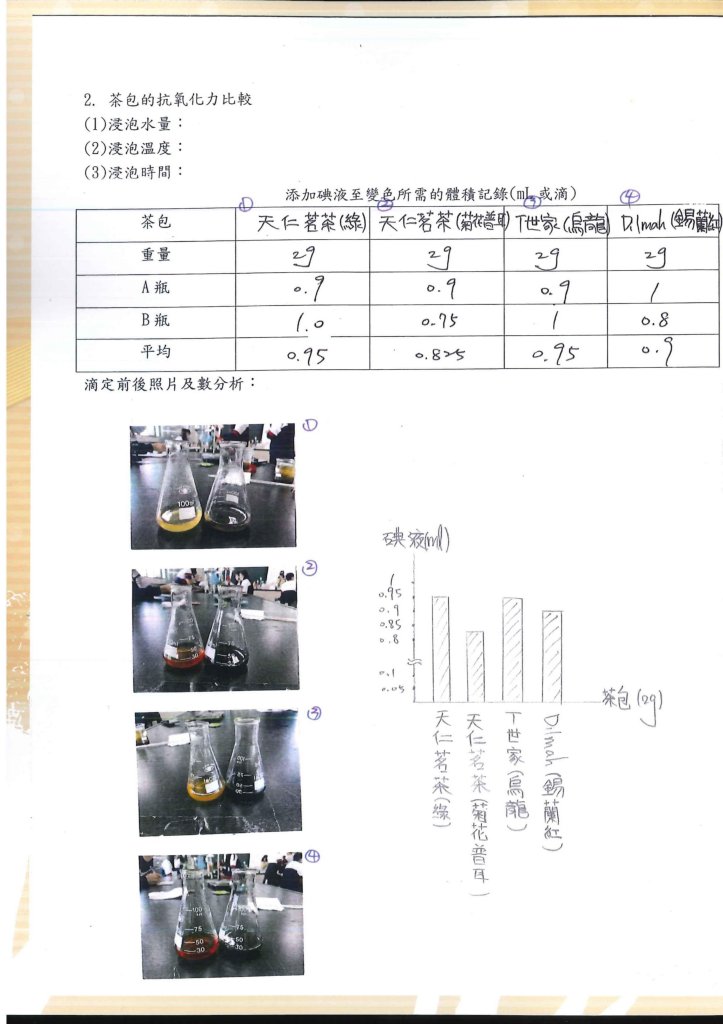 2. 茶包的抗氧化力比較
(1)浸泡水量：
(2)浸泡溫度：
(3)浸泡時間：
添加碘液至變色所需的體積記錄(mL 或滴)
① ② ③ ④
茶包 天仁茗茶(綠) 天仁茗茶(菊花普耳) T世家(烏龍) Dilmah(錫蘭紅)
重量 2g 2g 2g 2g
A瓶 0.9 0.9 0.9 1
B瓶 1.0 0.75 1 0.8
平均 0.95 0.825 0.95 0.9
滴定前後照片及數分析：
①
100
②
75
50
30
③
④
100
75
50
30
75
50
30
碘液(ml)
1
0.95
0.9
0.85
0.8
0.1
0.05
茶包(2g)
天仁茗茶(綠)
天仁茗茶(菊花普耳)
T世家(烏龍)
Dilmah(錫蘭紅)